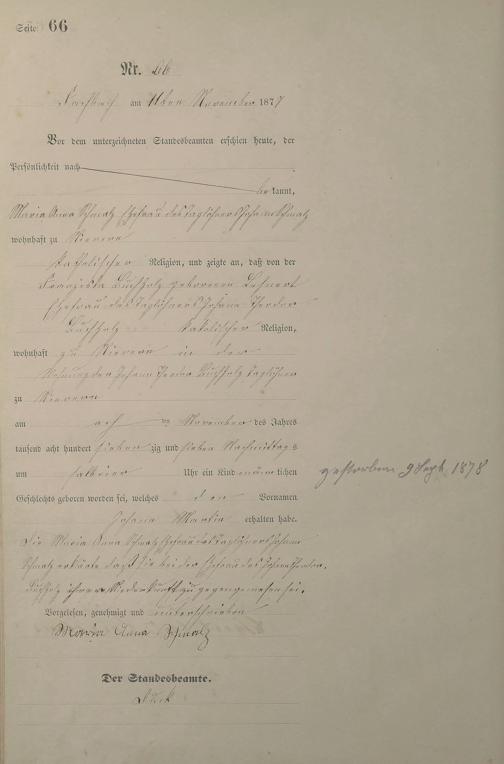 Seite: 66
Nr. 66
am 11ten November 1877
Vor dem unterzeichneten Standesbeamten erschien heute, der
Persönlichkeit nach
bekannt,
Maria Anna Schmalz Ehefrau des Taglöhners Johann Schmalz
wohnhaft zu
katholischer Religion, und zeigte an, daß von der
Franziska Buchholz geborenen
Ehefrau des Taglöhners Johann Theodor
Buchholz katolischer Religion,
wohnhaft zu in der
Wohnung des Johann Theodor Buchholz Taglöhner
zu
am November des Jahres
tausend acht hundert sieben zig und sieben Nachmittags
um halb Uhr ein Kind männlichen
Geschlechts geboren worden sei, welches den Vornamen
Johann Martin erhalten habe.
Die Maria Anna Schmalz Ehefrau des Taglöhners Johann
Schmalz erklärte daß sie bei der Ehefrau des Johann Theodor
Buchholz ihrer Niederkunft zugegen gewesen sei.
gestorben 9 Sept. 1878
Vorgelesen, genehmigt und unterschrieben
Maria Anna Schmalz
Der Standesbeamte.